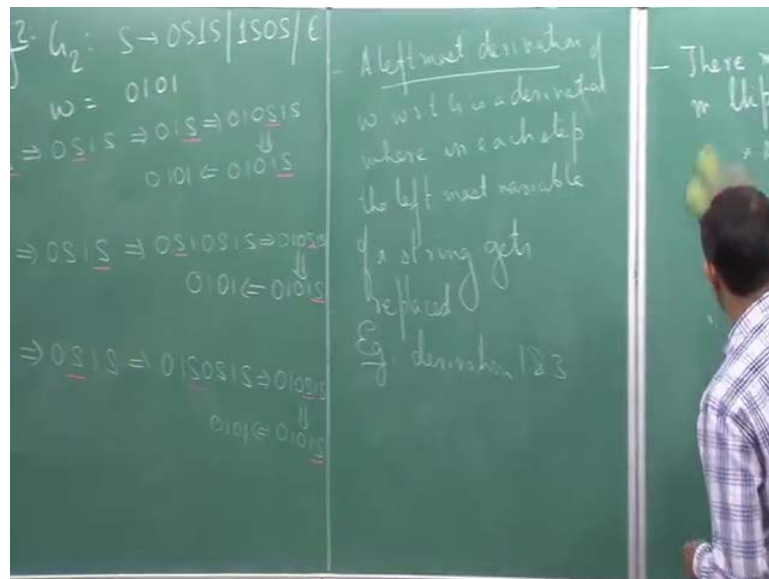 G₂: S → 0S1S/1S0S/ε
w = 0101
⇒ 0S1S ⇒ 01S ⇒ 010S1S
⇓
0101 ⇐ 0101S
⇒ 0S1S ⇒ 0S10S1S ⇒ 010S1S
⇓
0101 ⇐ 0101S
⇒ 0S1S ⇒ 01S0S1S ⇒ 010S1S
⇓
0101 ⇐ 0101S
- A left most derivation of
w w.r.t G is a derivation
where in each step
the left most variable
of a string gets
replaced
Eg. derivation 1&3
- There